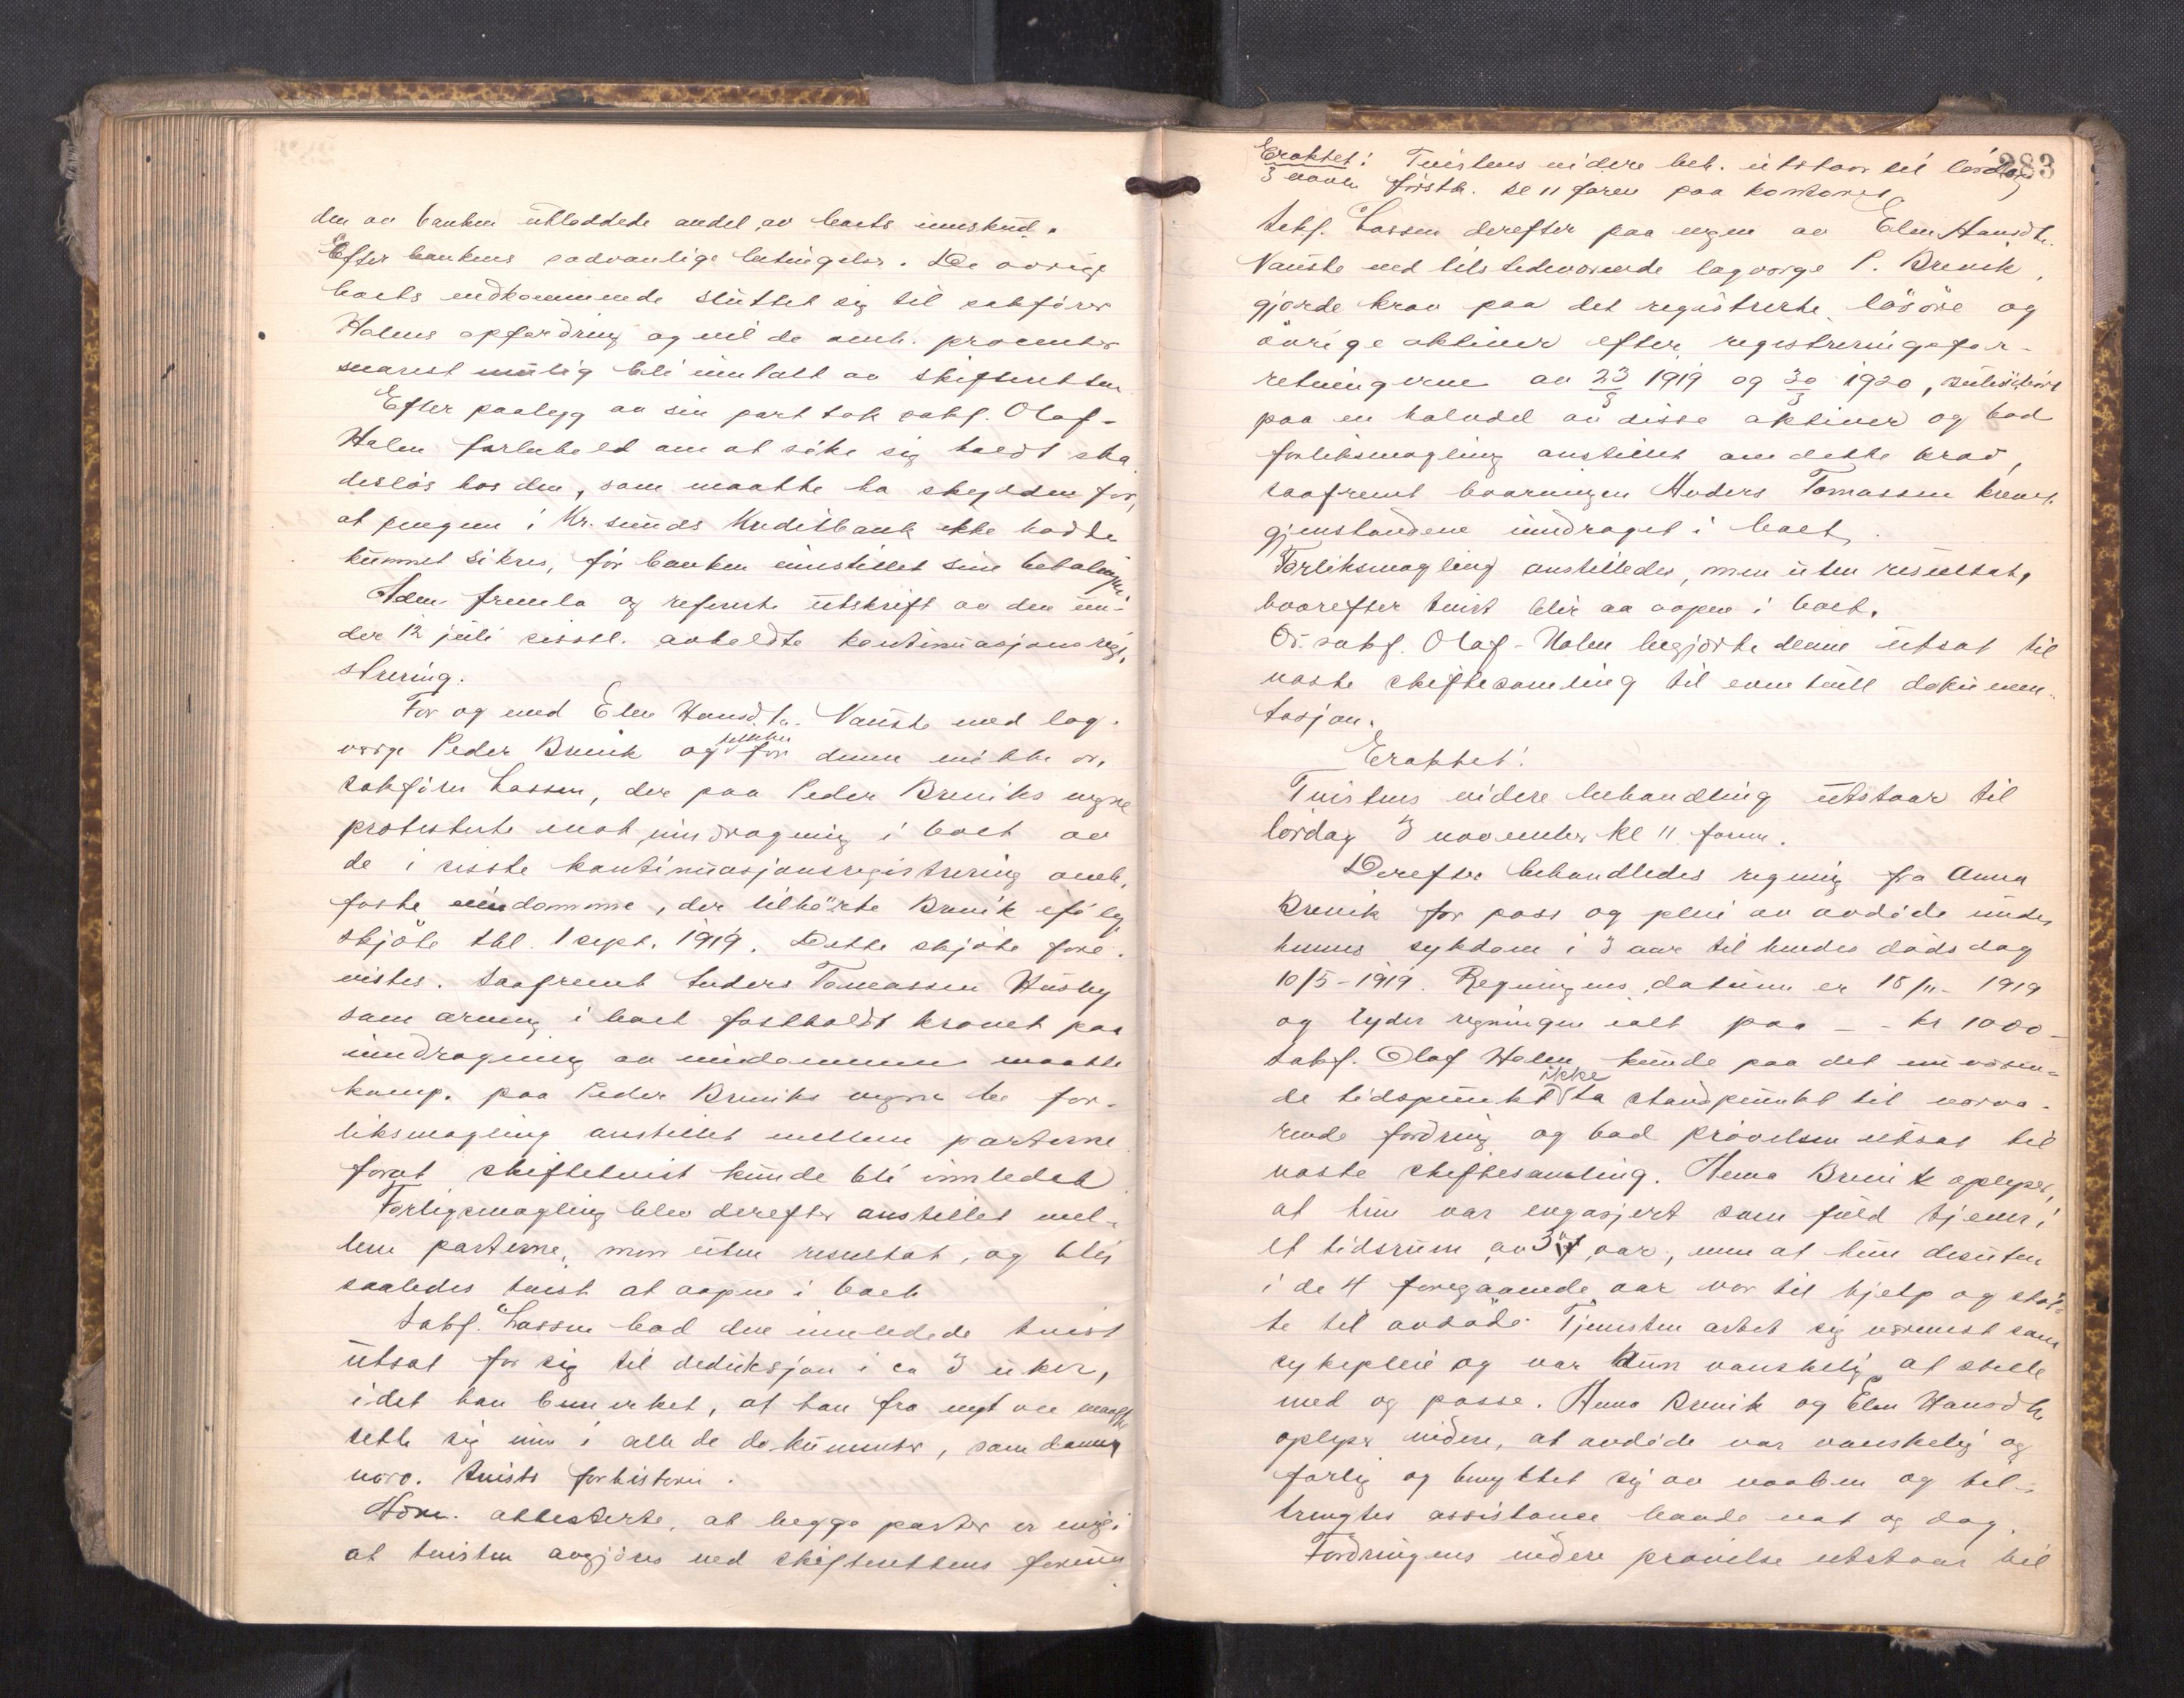 den av banken utloddede andel av boets innskud.
Efter bankens sedvanlige betingelser. De øvrige
boets vedkommende sluttet sig til sakfører
Holms opfordring og vil de omh. procenter
snarest mulig bli inntatt av skifteretten
Efter paalegg av sin part tok sakf. Olaf-
Holm forbehold om at søke sig holdt ska
desløs hos den, som maatte ha skylden for,
at pengene i Kr.sunds Kreditbank ikke hadde
kunnet sikres, før banken innstillet sine betalinger.
Adm. fremla og refererte utskrift av den un-
der 12 juli sisstl. avholdte kontinuasjonsregi-
strering.
For og med Elen Hansdtr. Nauste med lag-
verge Peder Brevik og for denne møtte or.
sakfører Lossen, der paa Peder Breviks vegne
protesterte mot inndragning i boet av
de i sisste kontinuasjonsregistrering omh.
faste eiendomme, der tilhørte Brevik ifølg
skjøte tbl. 1 sept. 1919. Dette skjøte fore-
vistes. Saafremt Anders Tomassen Husby
som arving i boet fastholdt kravet paa
inndragning av eiendommene maatte
komp. paa Peder Breviks vegne be for-
liksmegling anstillet mellem parterne
forat skiftetvist kunde bli innledet
Forligsmegling blev derefter anstillet mel-
lem parterne, men uten resultat, og blir
saaledes tvist at aapne i boet
Sakf. Lossen bad den innledede tvist
utsat for sig til deduksjon i ca 3 uker,
idet han bemerket, at han fra nyt av maatte
sette sig inn i alle de dokumenter, som danner
nærv. tvists forhistorie.
Adm. attesterte, at begge parter er enig i
at tvisten avgjøres ved skifterettens forum
283
Eraktet: Tvistens videre beh. utstaar til lørdag
3 novbr. førstk. kl 11 form paa kontoret
Sakf. Lossen derefter paa vegne av Elen Hansdtr.
Nauste med tilstedeværende lagverge P. Brevik,
gjorde krav paa det registrerte løsøre og
øvrige aktiver efter registreringsfor-
retningerne av 23/5 1919 og 30/3 1920,
paa en halvdel av disse aktiver og bad
forliksmegling anstillet om dette krav,
saafremt boarvingen Anders Tomassen krevet
gjenstandene inndraget i boet.
Forliksmegling anstilledes, men uten resultat,
hvorefter tvist blir aa aapne i boet.
O.r. sakf. Olaf-Holm begjærte denne utsat til
næste skiftesamling til eventuell dokumen-
tasjon.
Eraktet:
Tvistens videre behandling utstaar til
lørdag 3 november kl 11 form.
Derefter behandledes regning fra Anna
Brevik for pass og pleie av avdøde under
hennes sykdom i 3 aar til hendes dødsdag
10/5-1919. Regningens datum er 18/11- 1919
og lyder regningen ialt paa - - kr 1000 -
Sakf. Olaf Holm kunde paa det nuværen-
de tidspunkt ikke ta standpunkt til nærvæ-
rende fordring og bad prøvelsen utsat til
næste skiftesamling. Anna Brevik oplyser,
at hun var engasjert som fuld tjener i
et tidsrum av 3 aar, men at hun desuten
i de 4 foregaaende aar var til hjelp og støt-
te til avdøde. Tjenesten artet sig nærmest som
sykepleie og var hun vanskelig at stelle
med og passe. Anna Brevik og Elen Hansdtr
oplyser videre, at avdøde var vanskelig og
farlig og benyttet sig av vaaben og til-
trengtes assistance baade nat og dag.
Fordringens videre prøvelse utstaar til